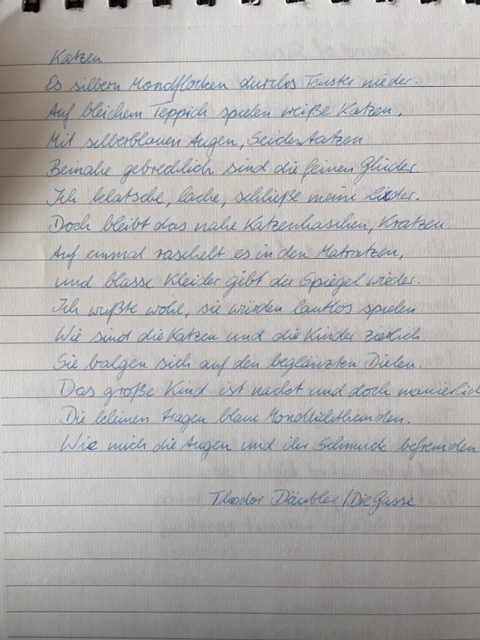 Katzen
Es silbern Mondflocken durchs Fenster nieder.
Auf bleichem Teppich spielen weiße Katzen,
Mit silberblauen Augen, Seidentatzen
Beinahe gebrechlich sind die feinen Glieder
Ich klatsche, lache, schließe meine Lider.
Doch bleibt das nahe Katzenhaschen, Kratzen.
Auf einmal raschelt es in den Matratzen,
und blasse Kleider gibt der Spiegel wieder.
Ich wußte wohl, sie würden lautlos spielen
Wie sind die Katzen und die Kinder zierlich.
Sie balgen sich auf den beglänzten Dielen.
Das große Kind ist nackt und doch manierlich
Die kleinen tragen blaue Mondlichthemden.
Wie mich die Augen und ihr Schmuck befremden
Theodor Däubler / Die Gasse